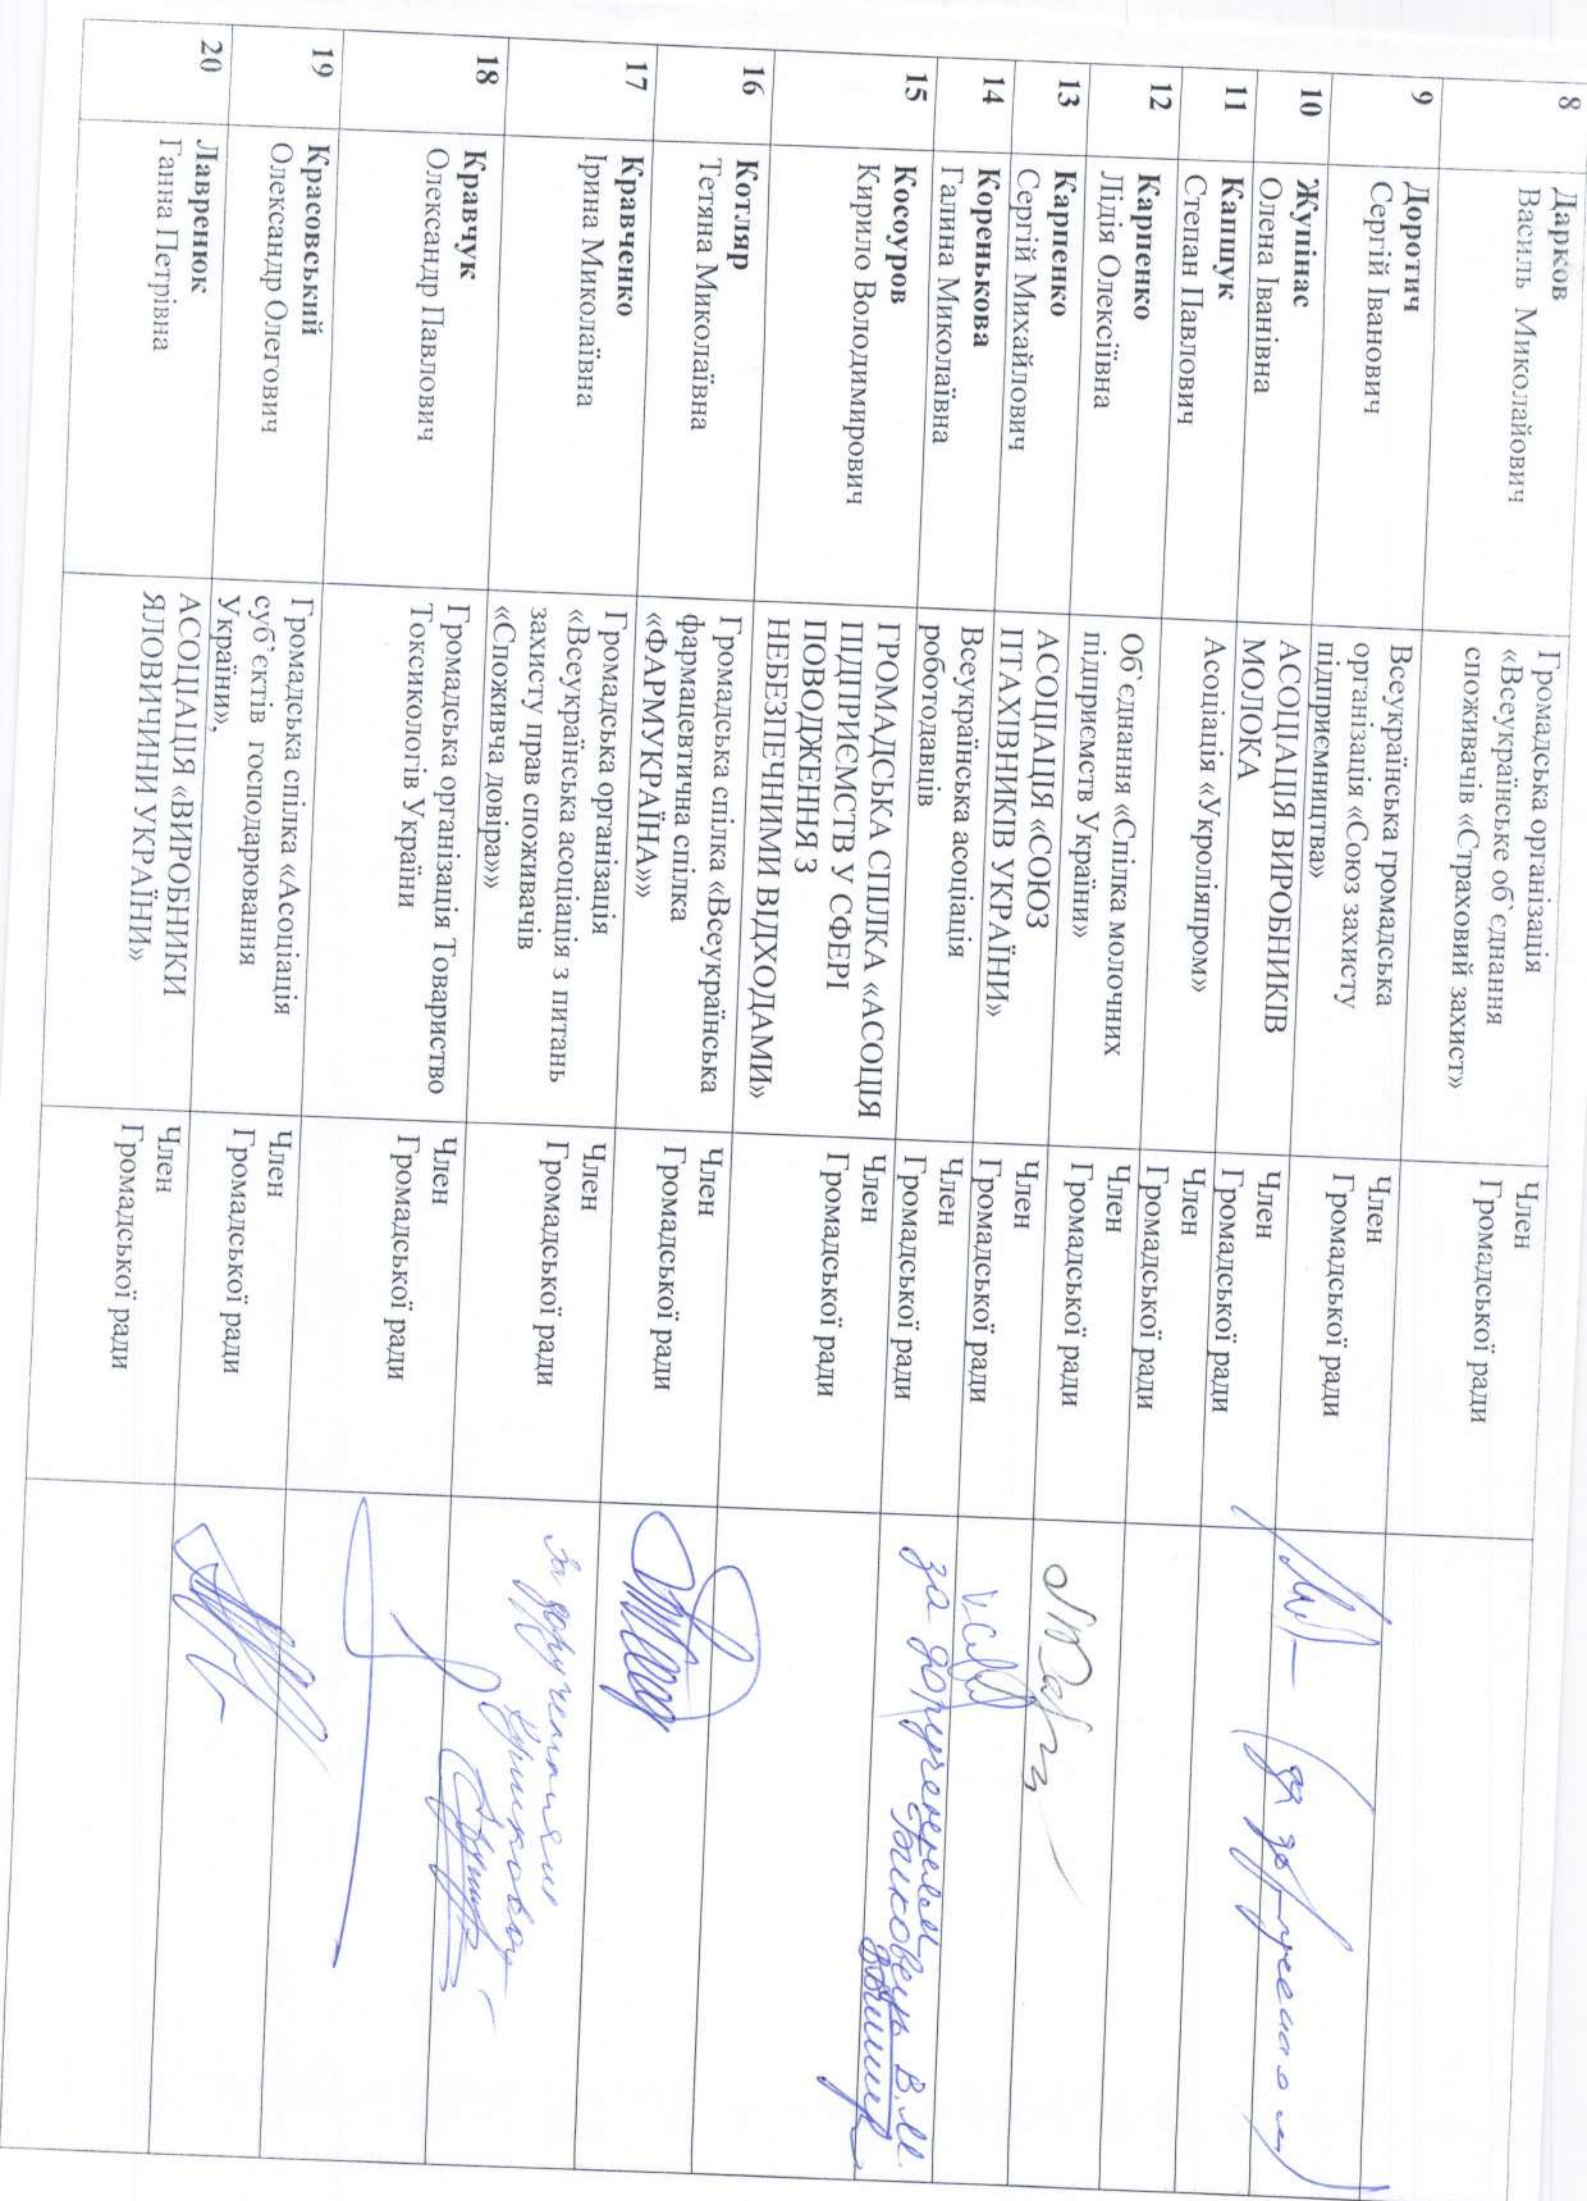 8
Дарков
Василь Миколайович
Громадська організація
«Всеукраїнське об`єднання
споживачів «Страховий захист»
Член
Громадської ради
9
Доротич
Сергій Іванович
Всеукраїнська громадська
організація «Союз захисту
підприємництва»
Член
Громадської ради
10
Жупінас
Олена Іванівна
АСОЦІАЦІЯ ВИРОБНИКІВ
МОЛОКА
Член
Громадської ради
11
Капшук
Степан Павлович
Асоціація «Укроліяпром»
Член
Громадської ради
12
Карпенко
Лідія Олексіївна
Об`єднання «Спілка молочних
підприємств України»
Член
Громадської ради
13
Карпенко
Сергій Михайлович
АСОЦІАЦІЯ «СОЮЗ
ПТАХІВНИКІВ УКРАЇНИ»
Член
Громадської ради
14
Коренькова
Галина Миколаївна
Всеукраїнська асоціація
роботодавців
Член
Громадської ради
15
Косоуров
Кирило Володимирович
ГРОМАДСЬКА СПІЛКА «АСОЦІЯ
ПІДПРИЄМСТВ У СФЕРІ
ПОВОДЖЕННЯ З
НЕБЕЗПЕЧНИМИ ВІДХОДАМИ»
Член
Громадської ради
за дорученням
Биковець В.М.
16
Котляр
Тетяна Миколаївна
Громадська спілка «Всеукраїнська
фармацевтична спілка
«ФАРМУКРАЇНА»»
Член
Громадської ради
17
Кравченко
Ірина Миколаївна
Громадська організація
«Всеукраїнська асоціація з питань
захисту прав споживачів
«Споживча довіра»»
Член
Громадської ради
За дорученням
18
Кравчук
Олександр Павлович
Громадська організація Товариство
Токсикологів України
Член
Громадської ради
19
Красовський
Олександр Олегович
Громадська спілка «Асоціація
суб`єктів господарювання
України»,
Член
Громадської ради
20
Лавренюк
Ганна Петрівна
АСОЦІАЦІЯ «ВИРОБНИКИ
ЯЛОВИЧИНИ УКРАЇНИ»
Член
Громадської ради